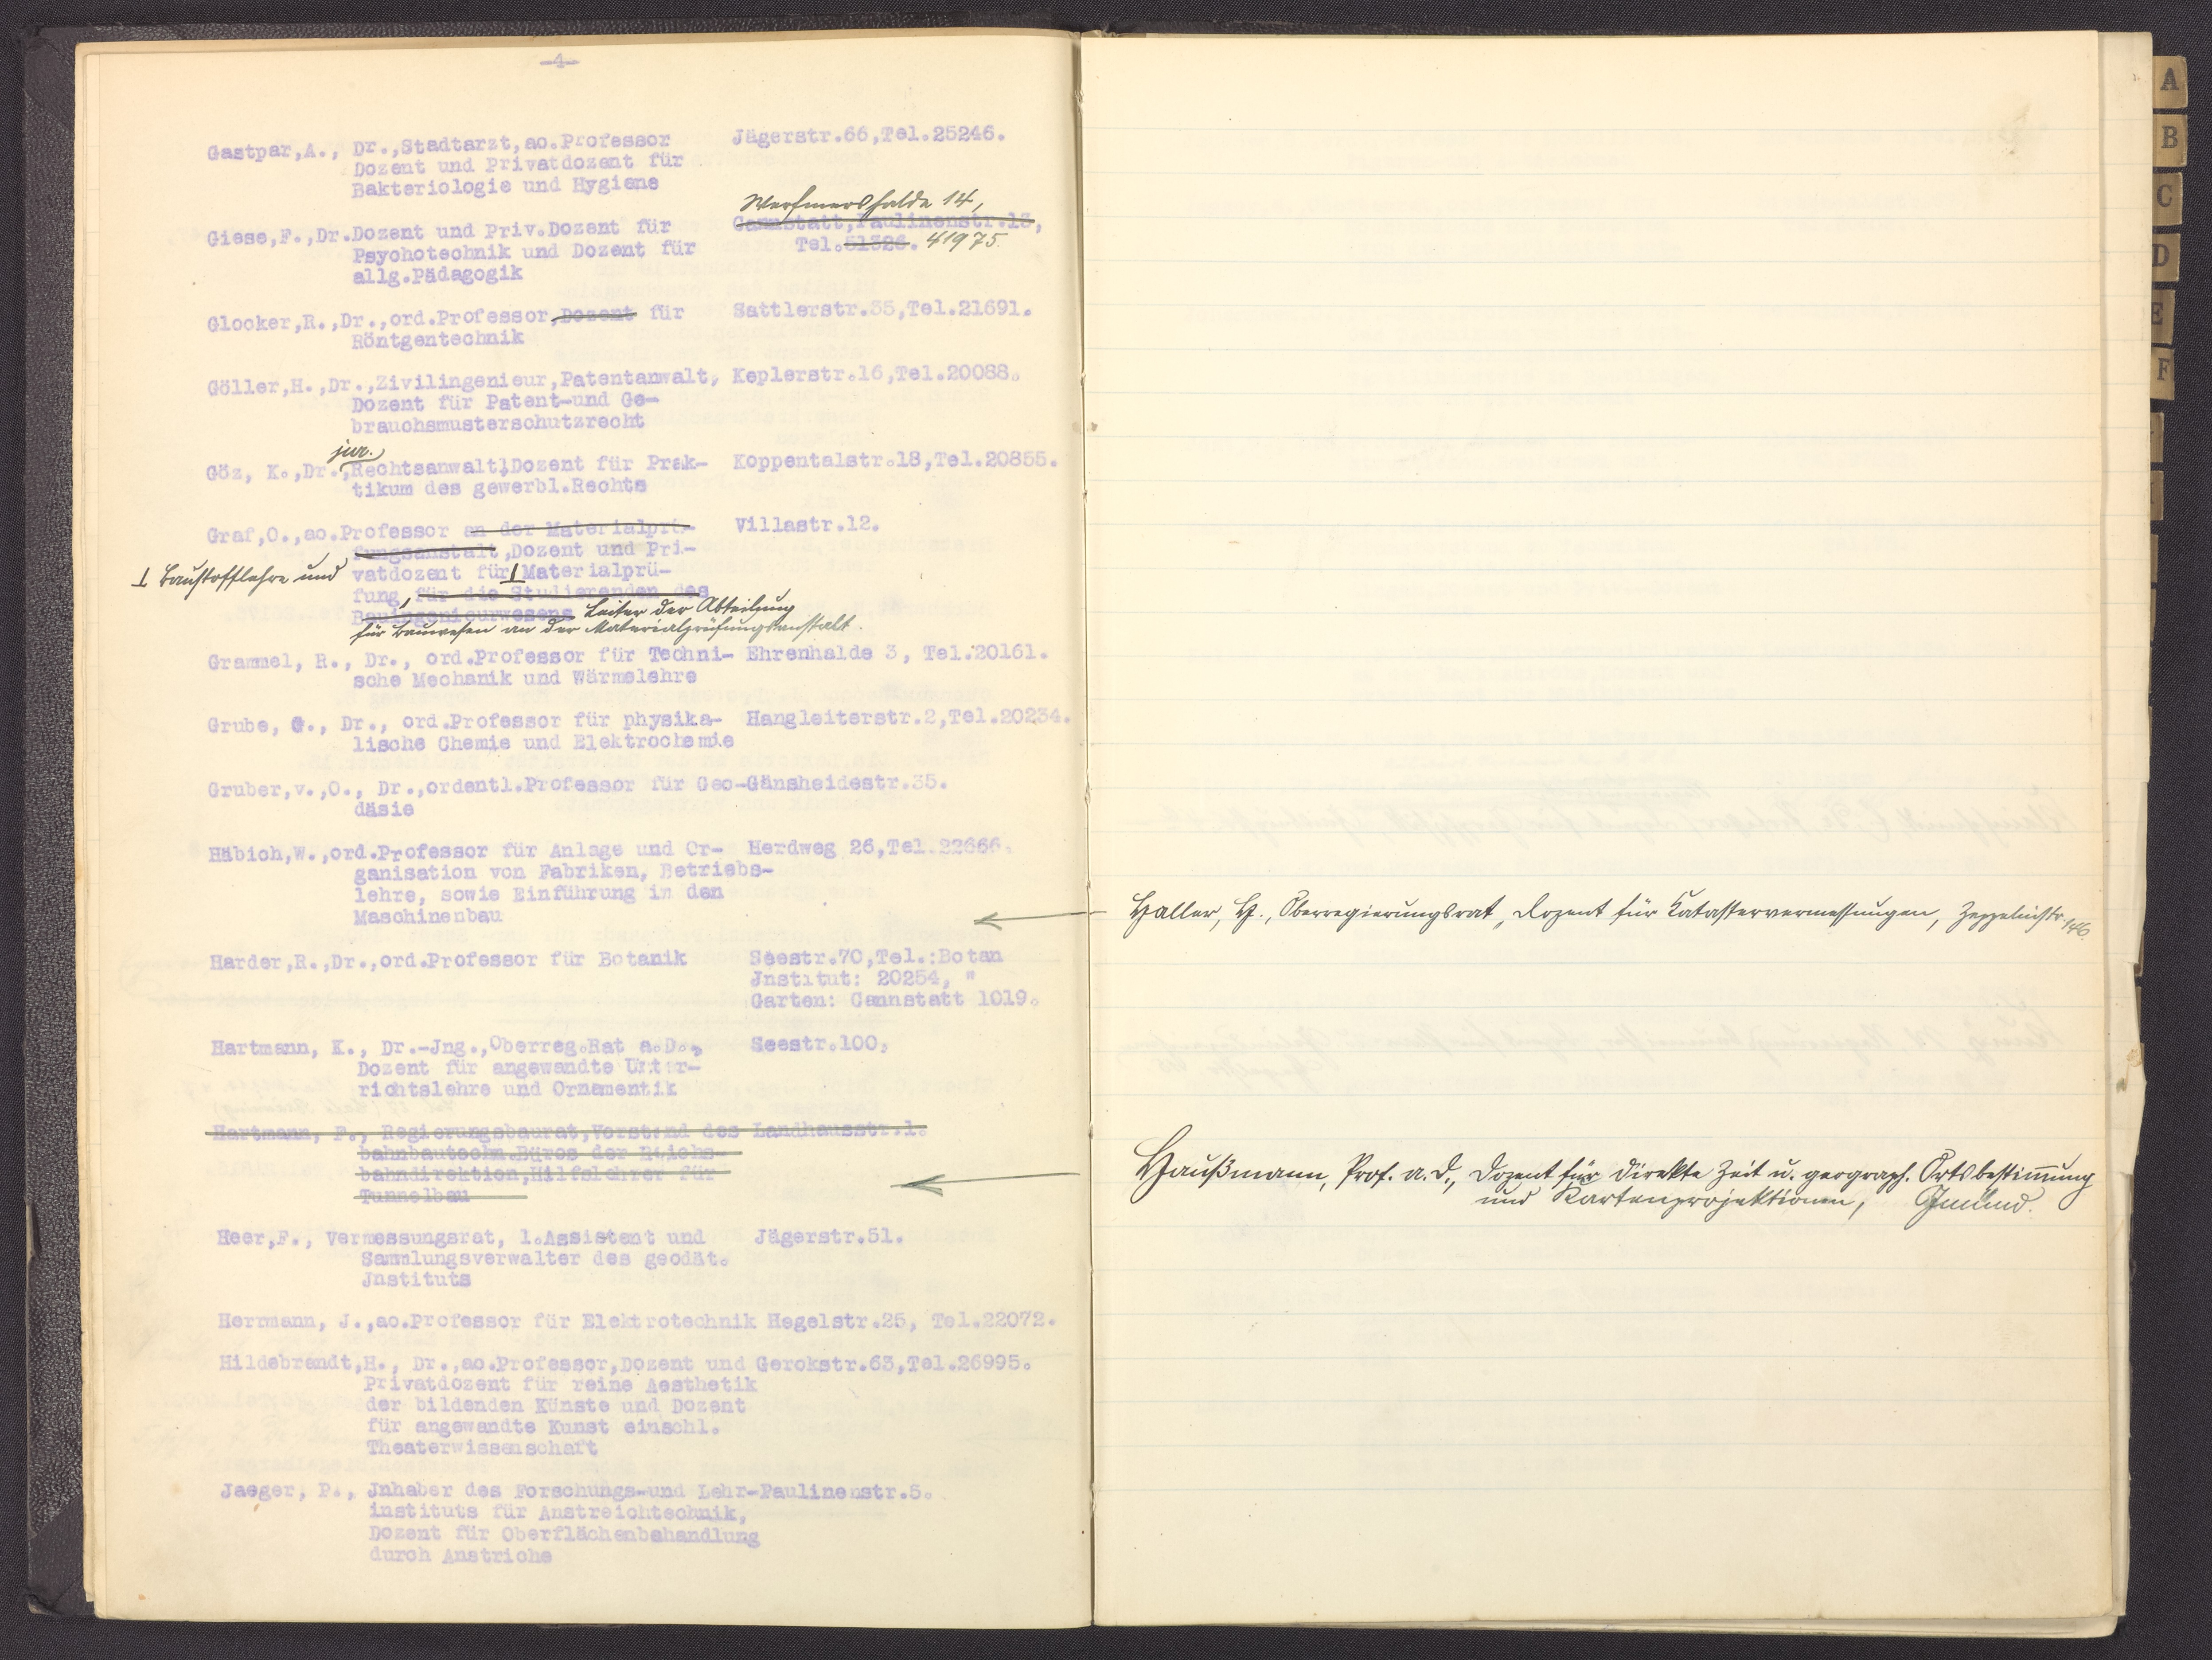 -4-
Gastpar,A., Dr.,Stadtarzt,ao.Professor Jägerstr.66,Tel.25246.
Dozent und Privatdozent für
Bakteriologie und Hygiene
Werfmershalde 14,
Giese,F.,Dr.Dozent und Priv.Dozent für Cannstatt,Paulinenstr.13,
Psychotechnik und Dozent für Tel.61326. 41975.
allg.Pädagogik
Glocker,R.,Dr.,ord.Professor,Dozent für Sattlerstr.35,Tel.21691.
Röntgentechnik
Göller,H.,Dr.,Zivilingenieur,Patentanwalt, Keplerstr.16,Tel.20088.
Dozent für Patent-und Ge-
brauchsmusterschutzrecht
jur.
Göz, K.,Dr.,Rechtsanwalt,Dozent für Prak- Koppentalstr.18,Tel.20855.
tikum des gewerbl.Rechts
Graf,O.,ao.Professor an der Materialprü- Villastr.12.
fungsanstalt,Dozent und Pri-
⊥ Baustofflehre und vatdozent für ⊥ Materialprü-
fung, für die Studierenden des
Bauingenieurwesens Leiter der Abteilung
für Bauwesen an der Materialprüfungsanstalt.
Grammel, R., Dr., ord.Professor für Techni- Ehrenhalde 3, Tel.20161.
sche Mechanik und Wärmelehre
Grube, G., Dr., ord.Professor für physika- Hangleiterstr.2,Tel.20234.
lische Chemie und Elektrochemie
Gruber,v.,O., Dr.,ordentl.Professor für Geo-Gänsheidestr.35.
däsie
Häbich,W.,ord.Professor für Anlage und Or- Herdweg 26,Tel.22666.
ganisation von Fabriken, Betriebs-
lehre, sowie Einführung in den
Maschinenbau
Harder,R.,Dr.,ord.Professor für Botanik Seestr.70,Tel.:Botan
Jnstitut: 20254, "
Garten: Cannstatt 1019.
Hartmann, K., Dr.-Jng.,Oberreg.Rat a.D., Seestr.100,
Dozent für angewandte Unter-
richtslehre und Ornamentik
Hartmann, F., Regierungsbaurat,Vorstand des Landhausstr.1.
bahnbautechn.Büros der Reichs-
bahndirektion,Hilfslehrer für
Tunnelbau
Heer,F., Vermessungsrat, 1.Assistent und Jägerstr.51.
Sammlungsverwalter des geodät.
Jnstituts
Herrmann, J.,ao.Professor für Elektrotechnik Hegelstr.25, Tel.22072.
Hildebrandt,H., Dr.,ao.Professor,Dozent und Gerokstr.63,Tel.26995.
Privatdozent für reine Aesthetik
der bildenden Künste und Dozent
für angewandte Kunst einschl.
Theaterwissenschaft
Jaeger, P., Jnhaber des Forschungs-und Lehr-Paulinenstr.5.
instituts für Anstreichtechnik,
Dozent für Oberflächenbehandlung
durch Anstriche
Haller, H., Oberregierungsrat, Dozent für Katastervermessungen, Zeppelinstr. 146.
Haußmann, Prof. a. D., Dozent für direkte Zeit u. geograph. Ortsbestimmung
und Kartenprojektionen, Gmünd.
A
B
C
D
E
F